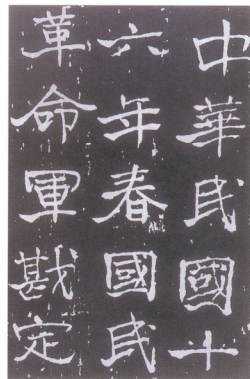 中華民國十
六年春國民
革命軍戡定